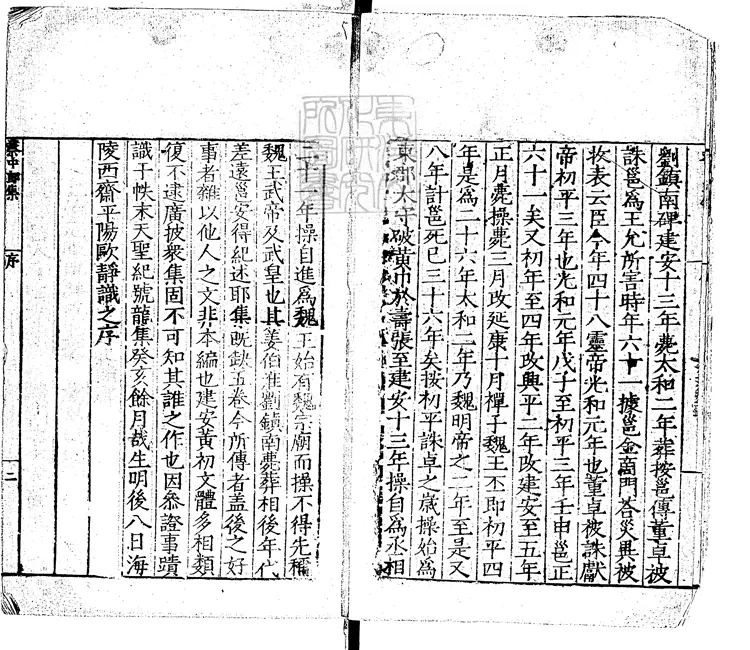 劉鎮南碑建安十三年薨太和二年葬按邕傳董卓被
誅邕為王允所害時年六十一據邕金商門荅災異被
收表云臣今年四十八靈帝光和元年也董卓被誅獻
帝初平三年也光和元年戊子至初平三年壬申邕正
六十一矣又初年至四年改興平二年改建安至五年
正月薨操薨三月改延康十月禪子魏王丕即初平四
年是為二十六年太和二年乃魏明帝之二年至是又
八年計邕死已三十六年矣按初平誅卓之歲操始為
東郡太守破黃巾於壽張至建安十三年操自為丞相
二十一年操自進為魏王始有魏宗廟而操不得先稱
魏王武帝及武皇也其姜伯淮劉鎮南薨葬相後年代
差遠邕安得紀述耶集既缺五卷今所傳者盖後之好
事者雜以他人之文非本編也建安黃初文體多相類
復不逮廣披衆集固不可知其誰之作也因叅證事蹟
識于帙末天聖紀號龍集癸亥餘月哉生明後八日海
陵西齋平陽歐靜識之序
蔡中郎集
序
二